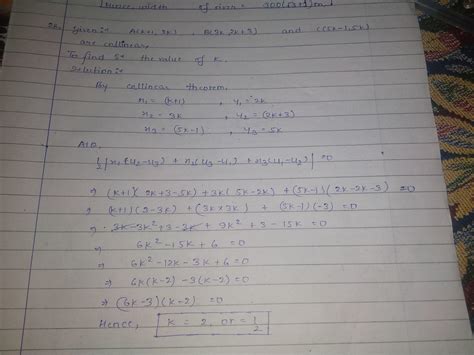 Hence, width of river = 300(√3+1)m
Given:- A(k+1, 2k), B(3k, 2k+3) and C(5k-1, 5k)
are collinear.
To find :- the value of k.
Solution:-
By collinear theorem.
x₁ = (k+1) , y₁ = 2k
x₂ = 3k , y₂ = (2k+3)
x₃ = (5k-1) , y₃ = 5k
ATQ.
1/2 | x₁(y₂-y₃) + x₂(y₃-y₁) + x₃(y₁-y₂) | = 0
⇒ (k+1)(2k+3-5k) + 3k(5k-2k) + (5k-1)(2k-2k-3) = 0
⇒ (k+1)(2-3k) + (3k×3k) + (5k-1)(-3) = 0
⇒ 3k-3k²+3-3k + 9k² + 3 - 15k = 0
⇒ 6k² - 15k + 6 = 0
⇒ 6k² - 12k - 3k + 6 = 0
⇒ 6k(k-2) - 3(k-2) = 0
⇒ (6k-3)(k-2) = 0
Hence, k = 2, or = 1/2